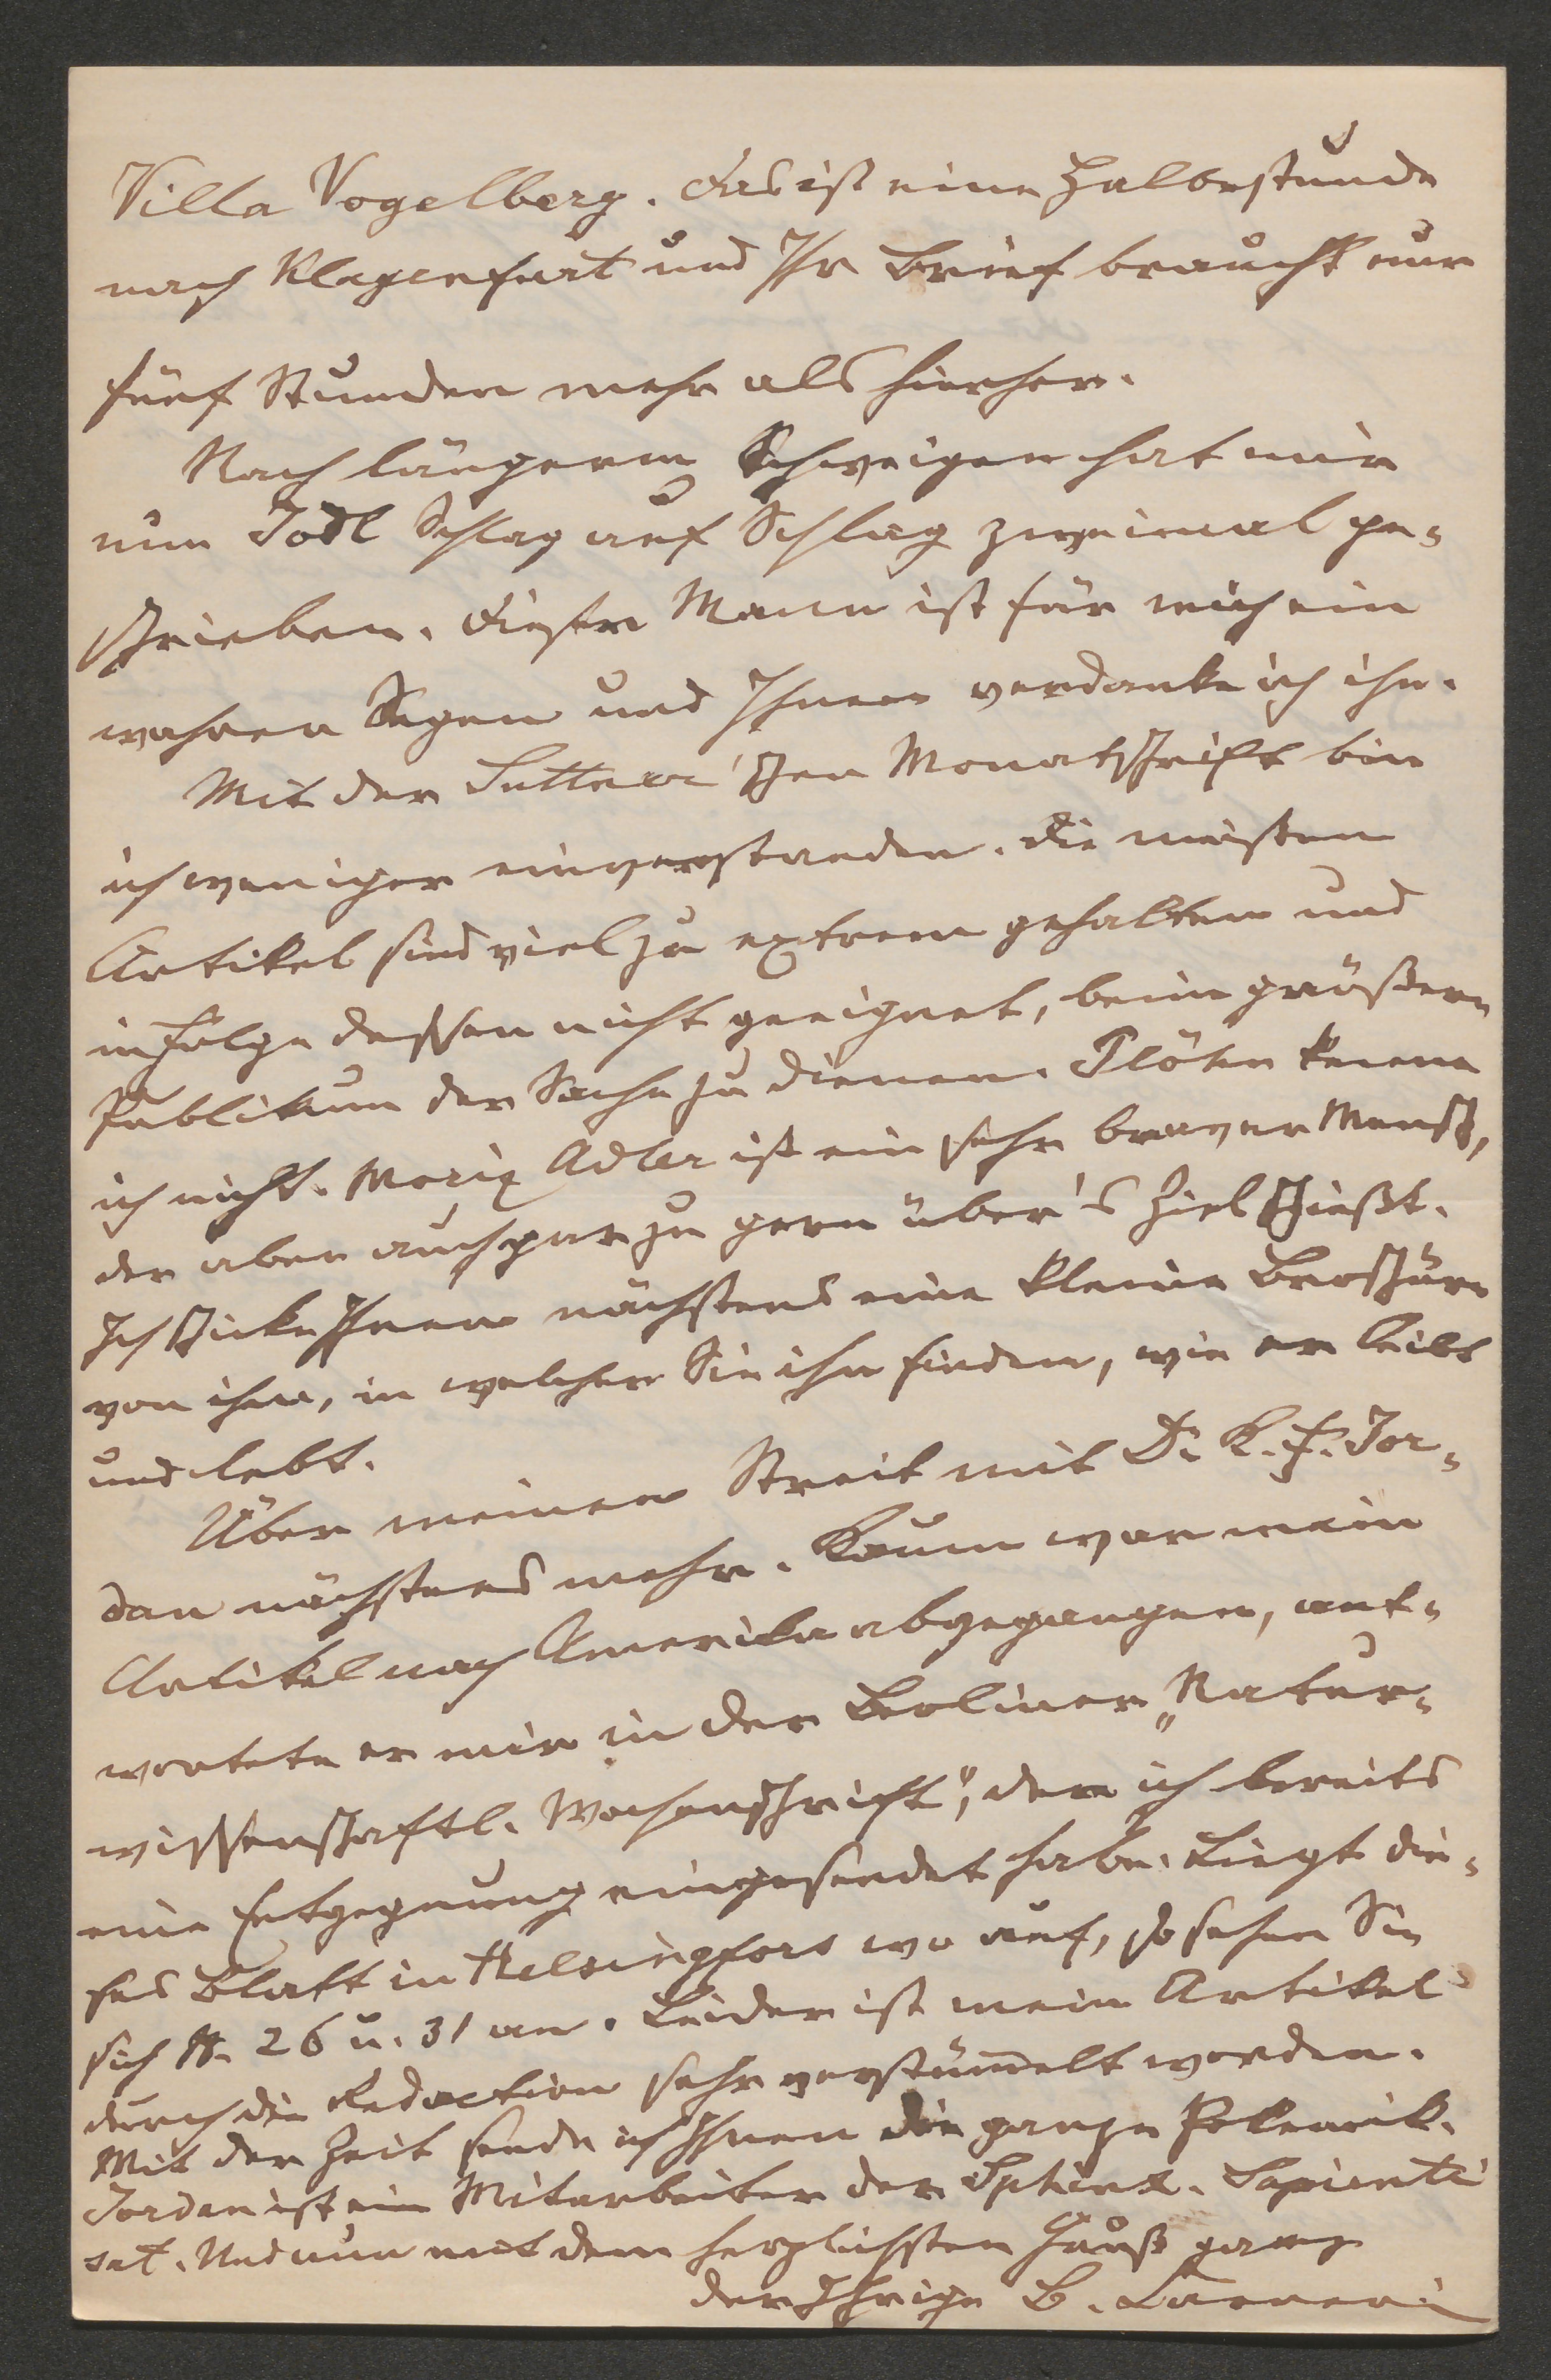 Villa Vogelberg. Das ist eine Halbestunde
nach Klagenfurt und Ihr Brief braucht nur
fünf Stunden mehr als hierher.
Nach längerm Schweigen hat mir
nun Jodl Schlag auf Schlag zweimal ge-
schrieben. Dieser Mann ist für mich ein
wahrer Segen und Ihnen verdanke ich ihn.
Mit der Suttner'schen Monatschrift bin
ich weniger einverstanden. Die meisten
Artikel sind viel zu extrem gehalten und
infolge dessen nicht geeignet, beim größern
Publikum der Sache zu dienen. Plöhn kenne
ich nicht. Moriz Adler ist ein sehr braver Mensch,
der aber auch gar zu gern über's Ziel schießt.
Ich schicke Ihnen nächstens eine kleine Broschüre
von ihm, in welcher Sie ihn finden, wie er leibt
und lebt.
Über meinen Streit mit Dr. K. F. Jor-
dan nächstens mehr. Kaum war mein
Artikel nach Amerika abgegangen, ant-
wortete er mir in der Berliner „Natur-
wissenschaftl. Wochenschrift", der ich bereits
eine Entgegnung eingesendet habe. Liegt die-
ses Blatt in Helsingfors wo auf, so sehen Sie
sich N. 26 u. 31 an. Leider ist mein Artikel
durch die Redaction sehr verstümmelt worden.
Mit der Zeit sende ich Ihnen die ganze Polemik.
Jordan ist ein Mitarbeiter der Sphinx. Sapienti
sat. Und nun mit dem herzlichsten Gruß ganz
der Ihrige B. Carneri